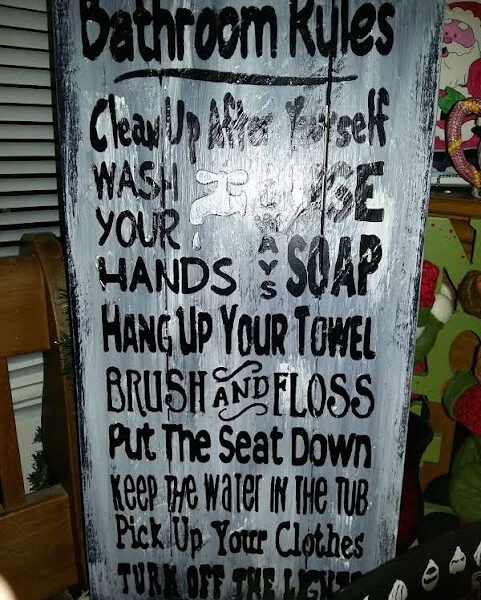 Bathroom Rules
Clean Up After Yourself
WASH YOUR HANDS
ALWAYS
USE SOAP
HANG UP YOUR TOWEL
BRUSH AND FLOSS
Put The Seat Down
Keep The Water In The Tub
Pick Up Your Clothes
TURN OFF THE LIGHTS